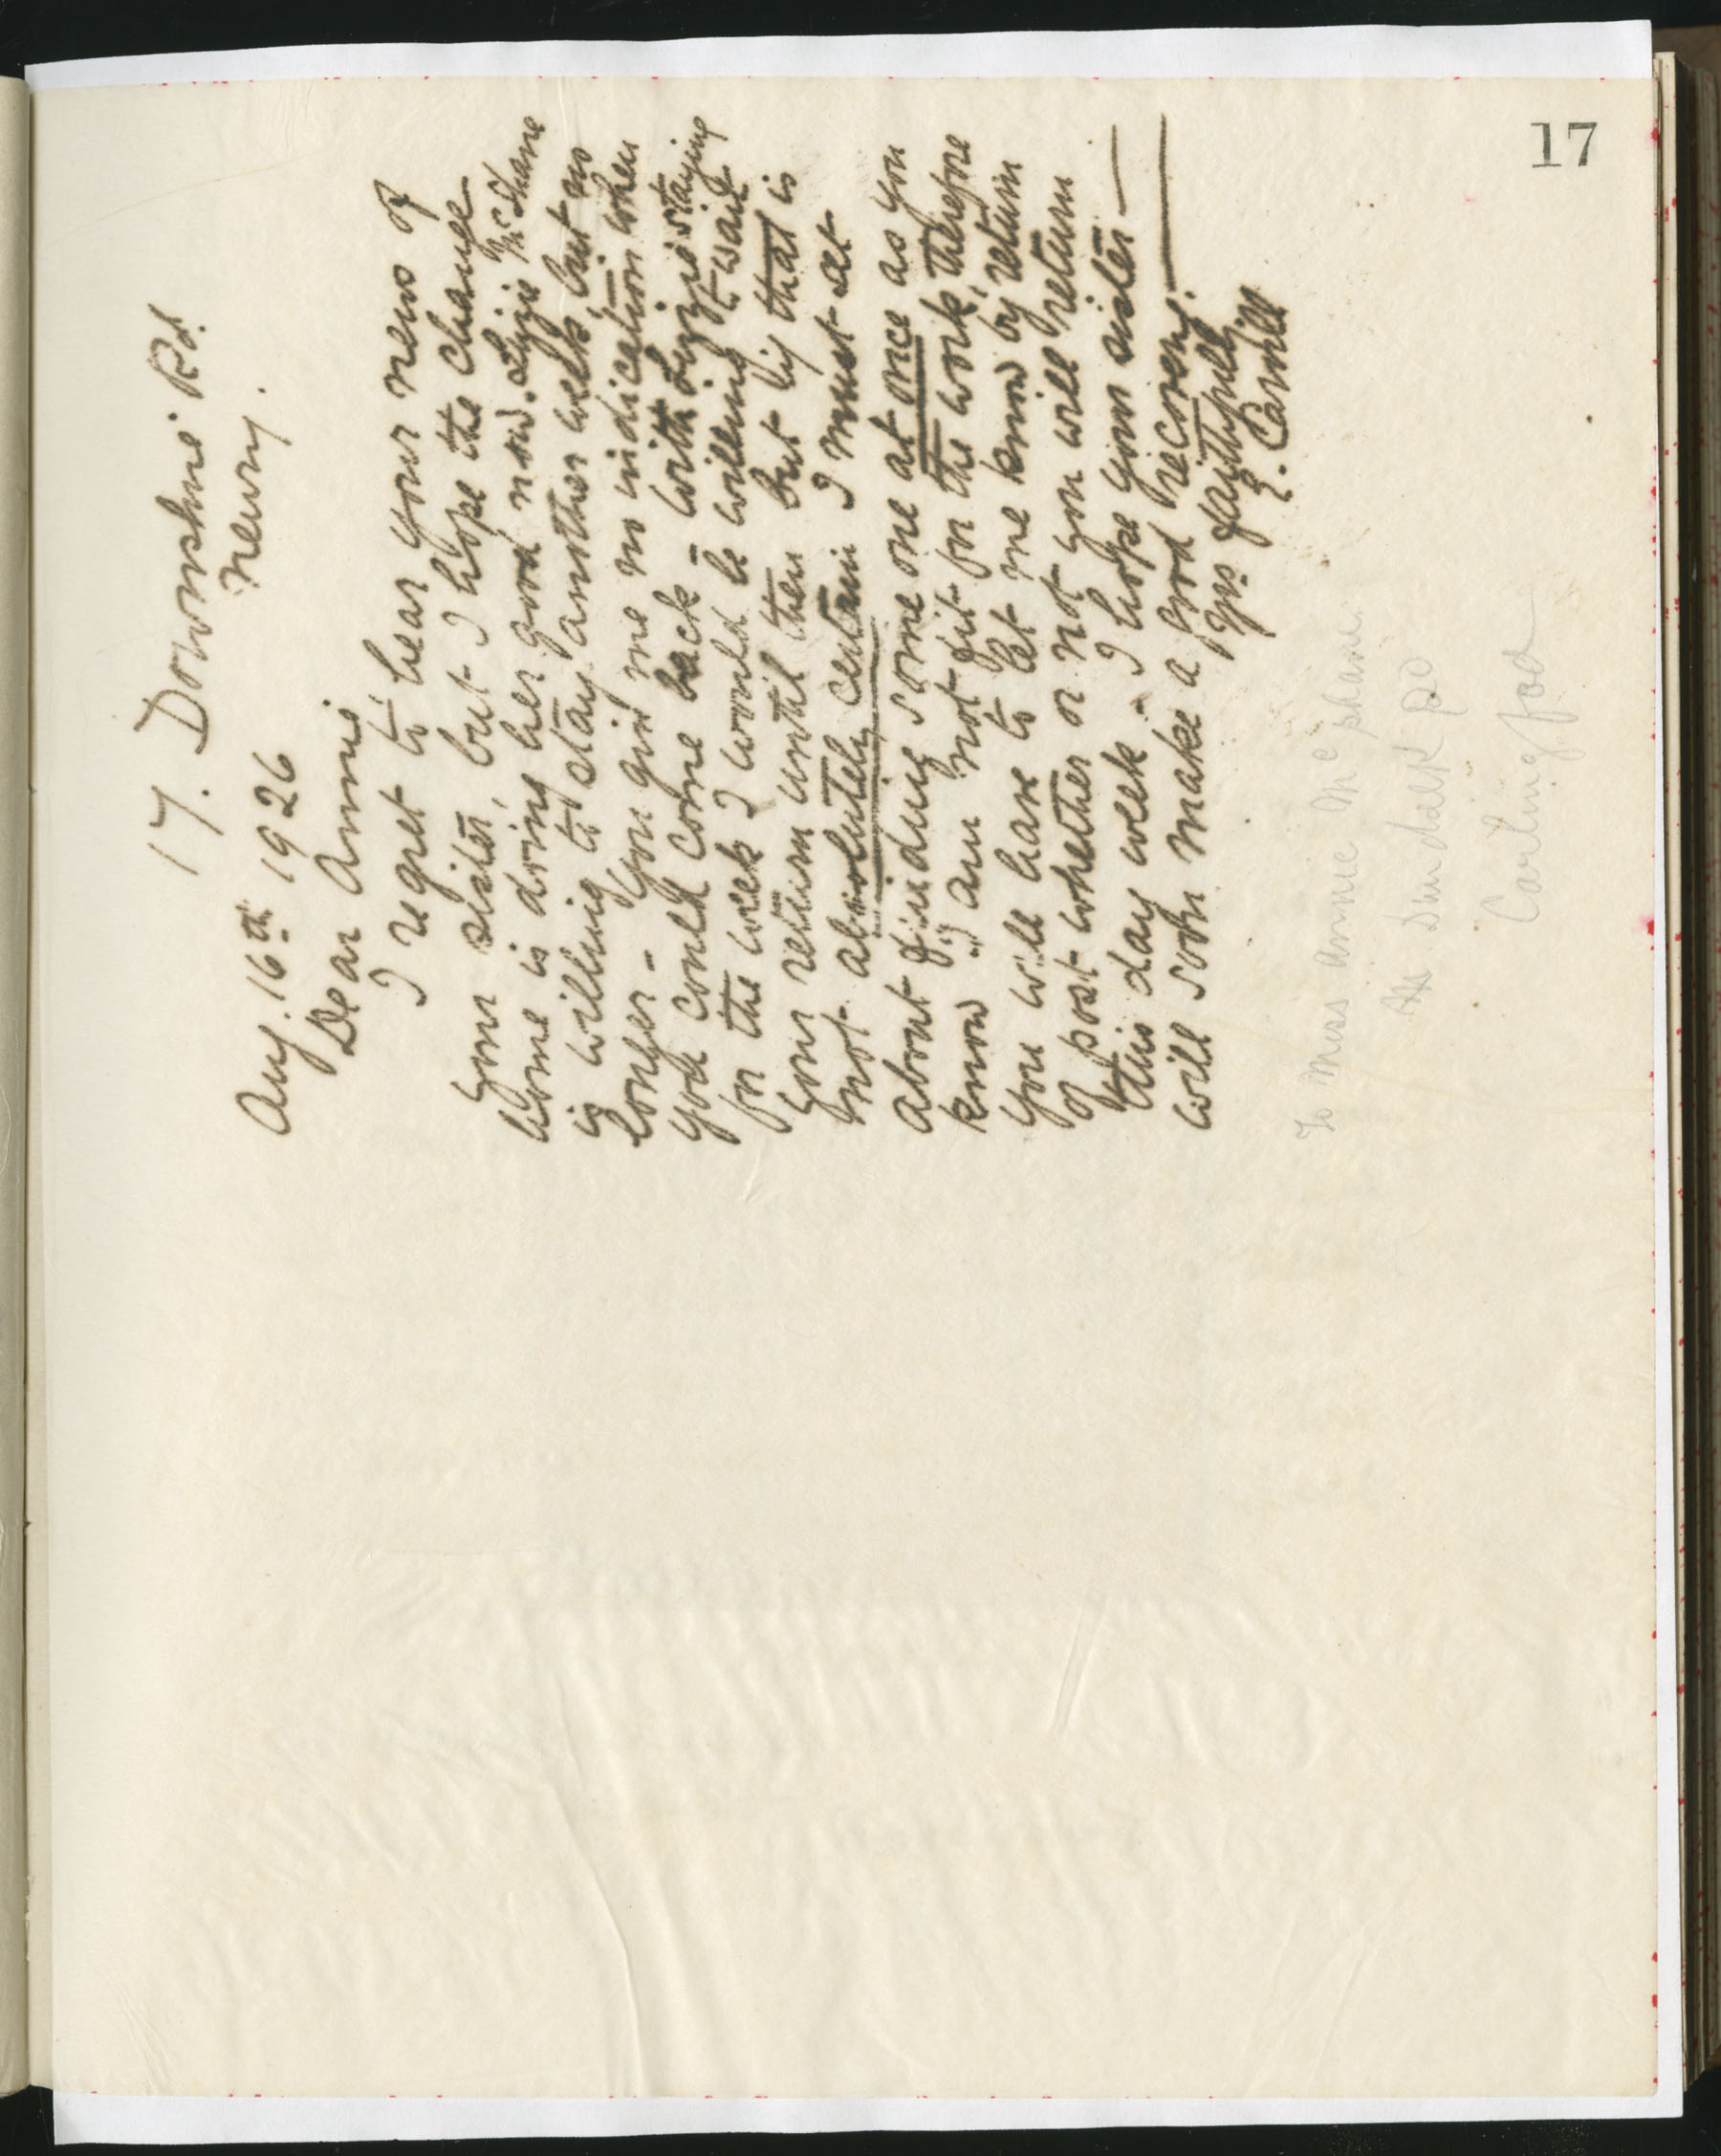 17
17. Downshire Rd.
Newry.
Aug. 16th 1926
Dear Annie,
I regret to hear your news of
your sister, but I hope the change
home is doing her good now. Lizzie McShane
is willing to stay another week, but no
longer - You give me no indication when
you could come back - with Lizzie staying
for the week I would be willing to wait
your return until then but if that is
not absolutely certain I must see
about finding some one at once as you
know I am not fit for the work, therefore
you will have to let me know by return
of post whether or not you will return
this day week - I hope your sister
will soon make a good recovery.
Yrs faithfully
E. Carvill
To Miss Annie McShane
Dundalk Rd
Carlingford